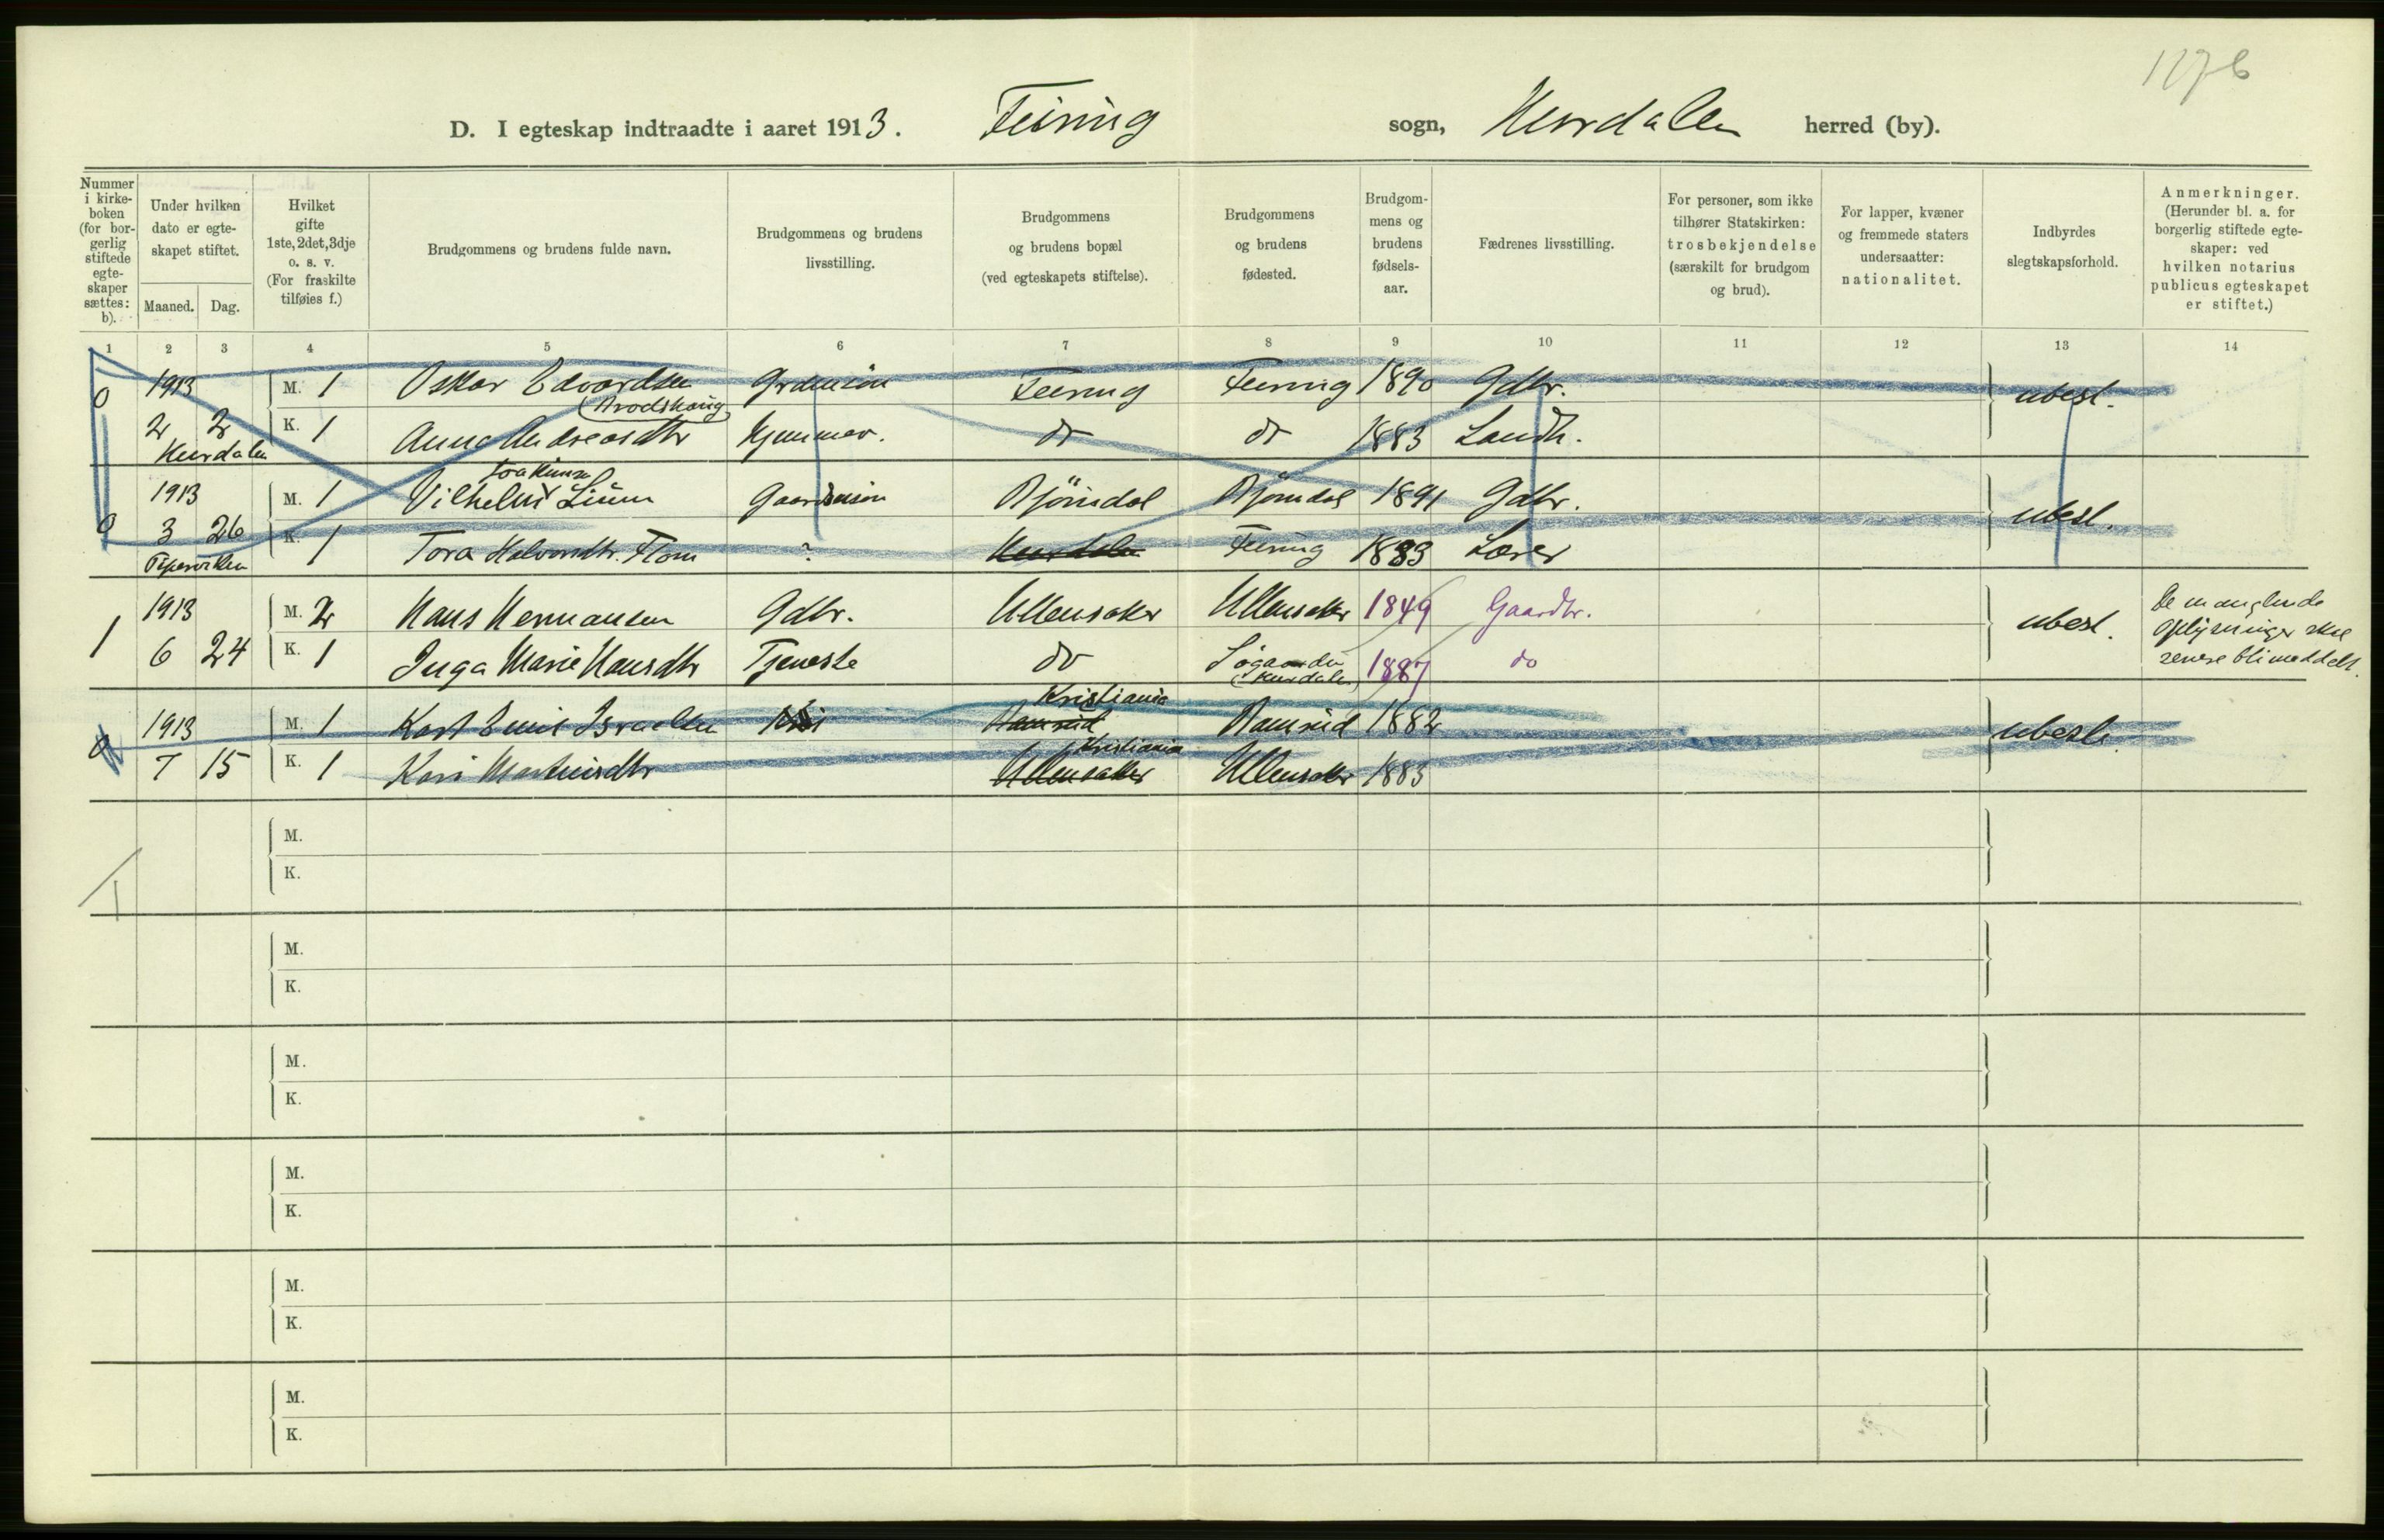 1276
D. I egteskap indtraadte i aaret 1913. Feiring sogn, Hurdalen herred (by).
Nummer i kirke-boken (for bor-gerlig stiftede egte-skaper sættes: b).
Under hvilken dato er egte-skapet stiftet.
Maaned. Dag.
Hvilket gifte 1ste, 2det, 3dje o. s. v. (For fraskilte tilføies f.)
Brudgommens og brudens fulde navn.
Brudgommens og brudens livsstilling.
Brudgommens og brudens bopæl (ved egteskapets stiftelse).
Brudgommens og brudens fødested.
Brudgom-mens og brudens fødsels-aar.
Fædrenes livsstilling.
For personer, som ikke tilhører Statskirken: trosbekjendelse (særskilt for brudgom og brud).
For lapper, kvæner og fremmede staters undersaatter: nationalitet.
Indbyrdes slegtskapsforhold.
Anmerkninger. (Herunder bl. a. for borgerlig stiftede egte-skaper: ved hvilken notarius publicus egteskapet er stiftet.)
1 2 3 4 5 6 7 8 9 10 11 12 13 14
0 1913 M. 1 Oskar Edvardsen Feiring Feiring 1890 Gdbr. ubesl.
2 2 K. 1 Anna Andreasdtr do do 1883 Landh.
Hurdalen
1913 M. 1 Vilhelm Joakimsen Lium Gaardmson Bjömdal Bjömdal 1891 Gdbr. ubesl.
0 3 26 K. 1 Tora Halvorsdtr. ? Hurdalen Feiring 1883 Lærer
Piperviken
1913 M. 2 Hans Hermansen Gdbr. Ullensaker Ullensaker 1849 Gaardbr. ubesl. De manglende
1 6 24 K. 1 Inga Marie Hansdtr Tjeneste do (Hurdalen) 1887 do oplysninger skal
senere bli meddelt.
Kristiania
0 1913 M. 1 Karl Emil Israelsen Ramsrud 1882 ubesl.
Kristiania
7 15 K. 1 Kari Martinisdtr Ullensaker Ullensaker 1883
M.
K.
M.
K.
M.
K.
M.
K.
M.
K.
M.
K.